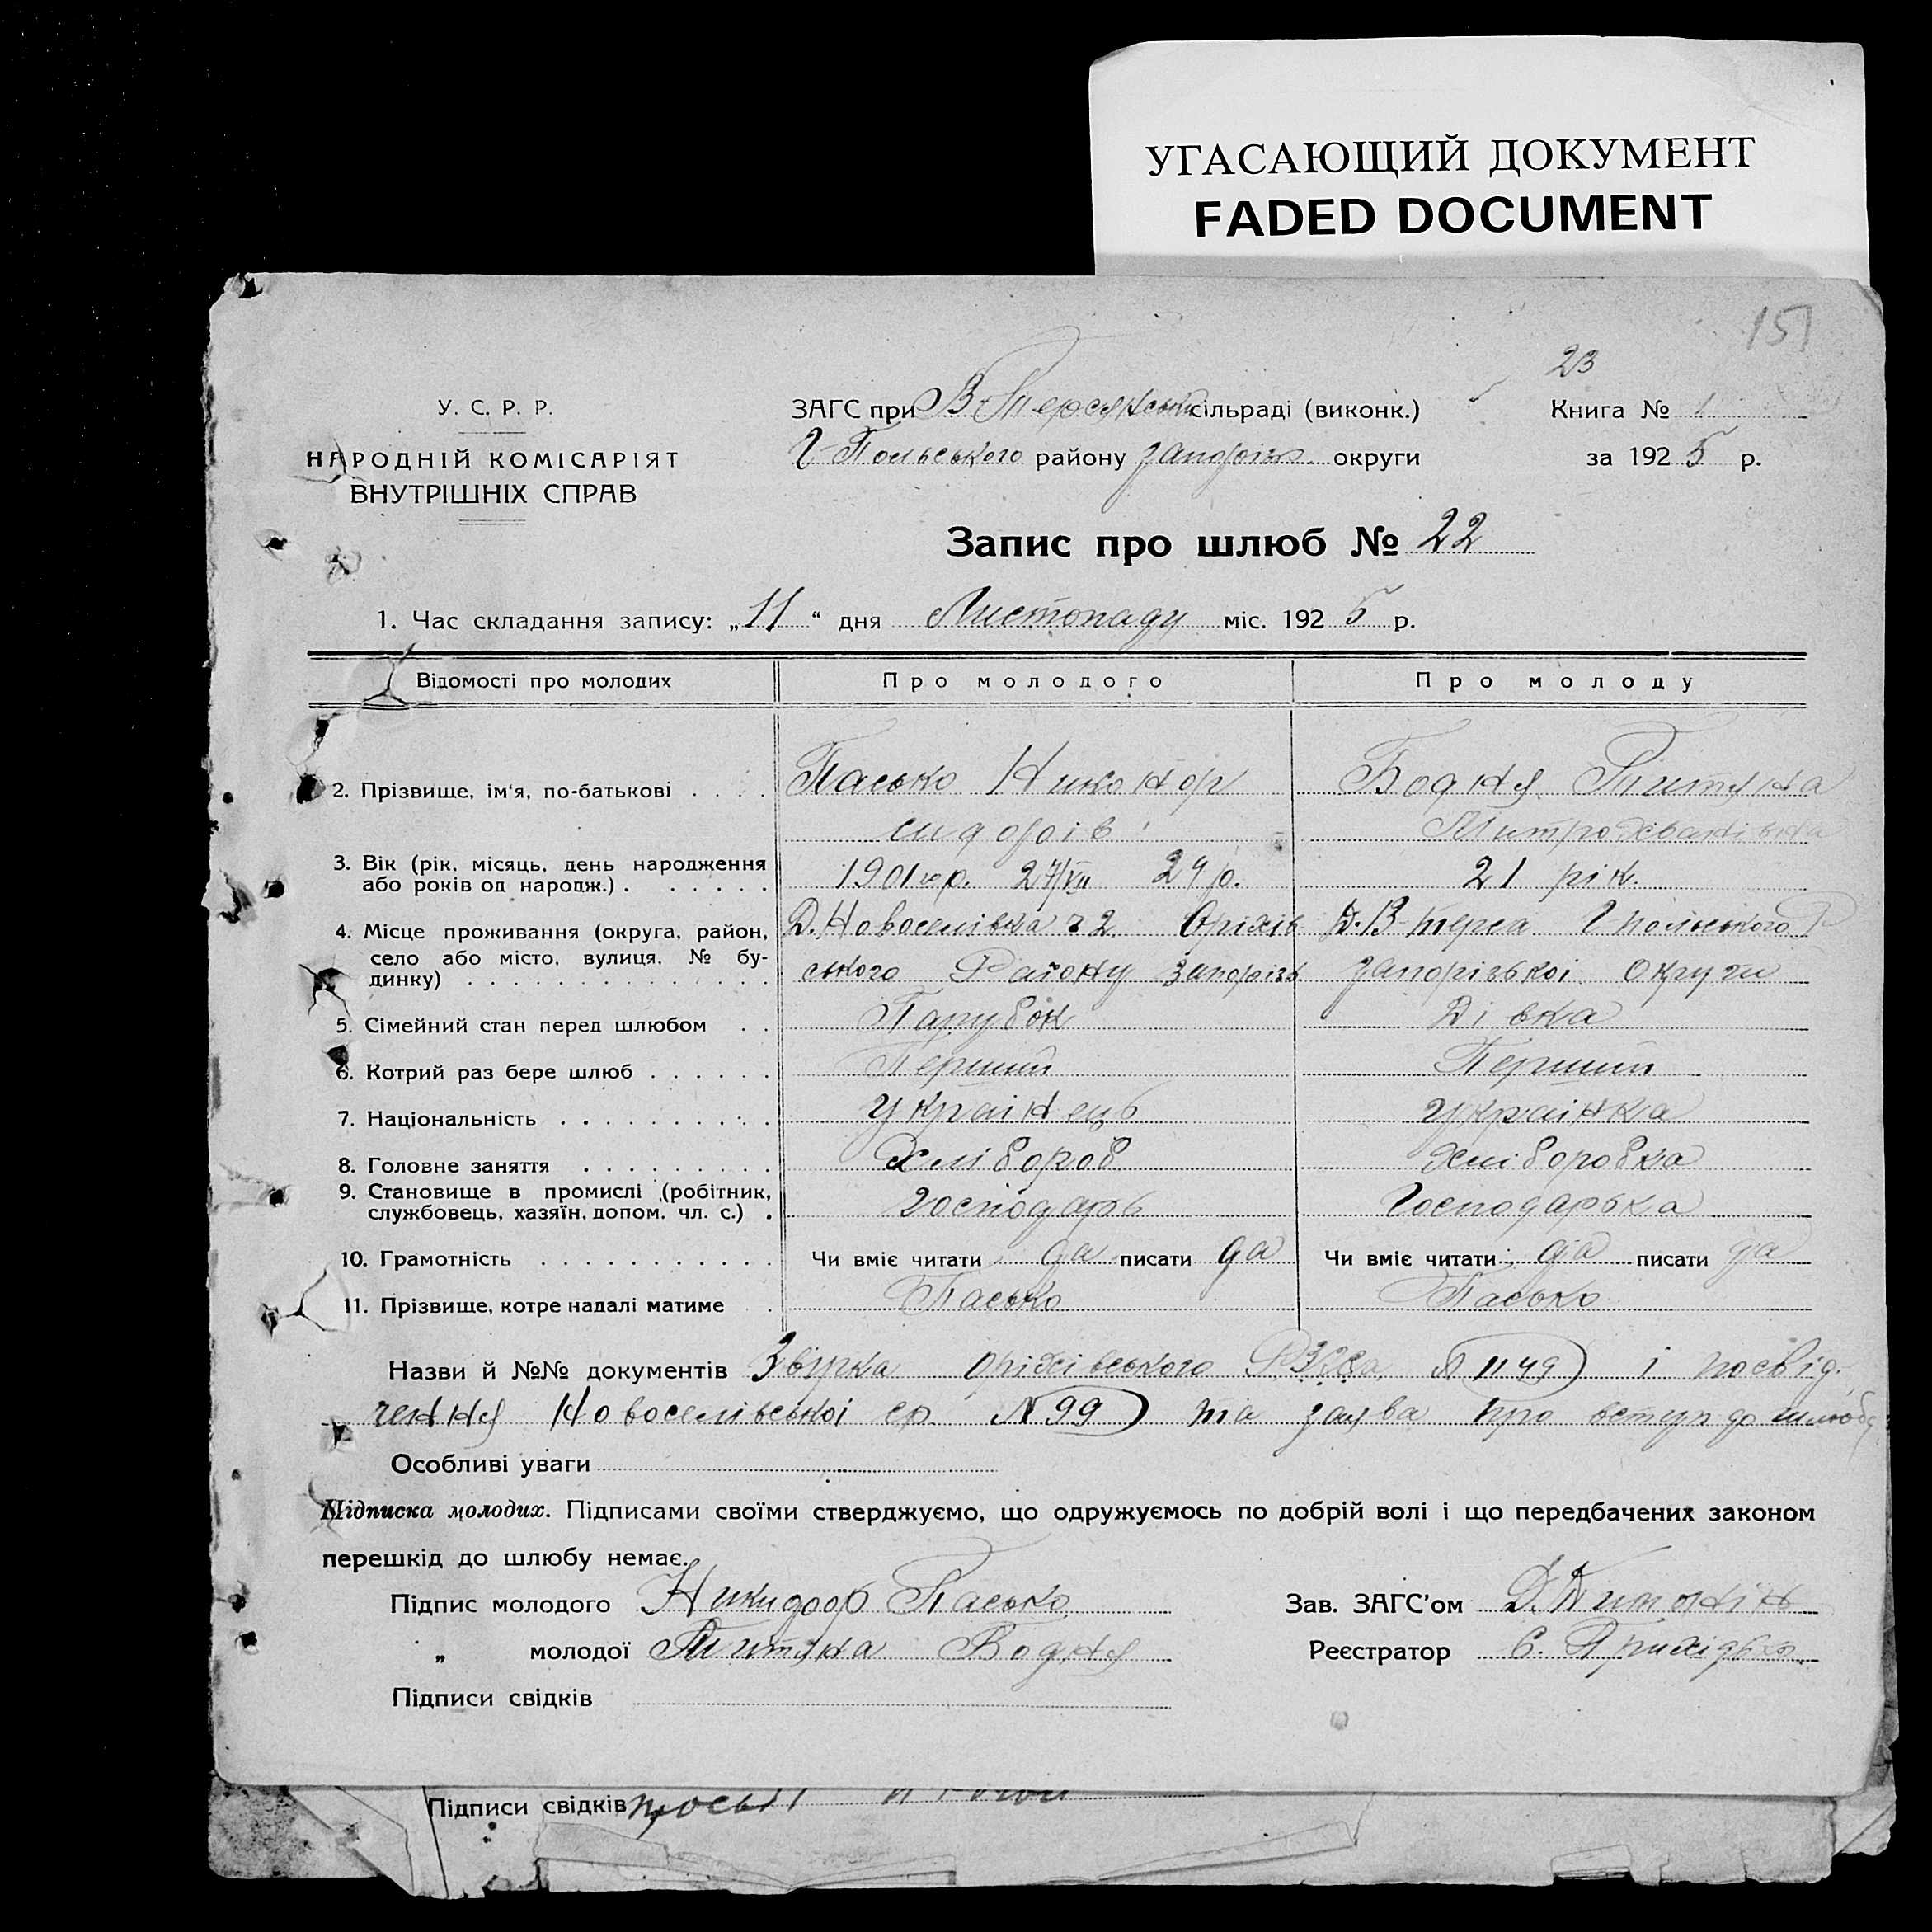 УГАСАЮЩИЙ ДОКУМЕНТ
FADED DOCUMENT
151
23
У. С. Р. Р.
НАРОДНІЙ КОМІСАРІЯТ
ВНУТРІШНІХ СПРАВ
ЗАГС при В-Терсянській сільраді (виконк.)
Г-Польського району Запоріж. округи
Книга № 1
за 1925 р.
Запис про шлюб № 22
1. Час складання запису: „11“ дня Листопаду міс. 1925 р.
Відомості про молодих Про молодого Про молоду
2. Прізвище, ім'я, по-батькові . . . . Пасько Никонор Бодня
сидорів
3. Вік (рік, місяць, день народження
або років од народж.) . . . . . . 1901 р. 27/VII 24 р. 21 рік.
4. Місце проживання (округа, район, Д. Новоселівка ч 2. Оріхів Д. В-терса Гпольського Р
село або місто, вулиця, № бу-
динку) . . . . . . . . . . . . . . ського Району Запорізь. Запорізької Округи
5. Сімейний стан перед шлюбом . . Парубок Дівка
6. Котрий раз бере шлюб . . . . . . Перший Перший
7. Національність . . . . . . . . . . Українець Українка
8. Головне заняття . . . . . . . . . Хлібороб Хліборобка
9. Становище в промислі (робітник,
службовець, хазяїн, допом. чл. с.) . Господарь Господарька
10. Грамотність . . . . . . . . . . . Чи вміє читати да писати да Чи вміє читати да писати да
11. Прізвище, котре надалі матиме . Пасько Пасько
Назви й №№ документів Звірка оріхівського № 1149 і посвід.
чення Новоселівської ср N 99 та заява про вступ до шлюбу
Особливі уваги
Підписка молодих. Підписами своїми стверджуємо, що одружуємось по добрій волі і що передбачених законом
перешкід до шлюбу немає.
Підпис молодого Пасько Зав. ЗАГС'ом
„ молодої Бодня Реєстратор
Підписи свідків
Підписи свідків